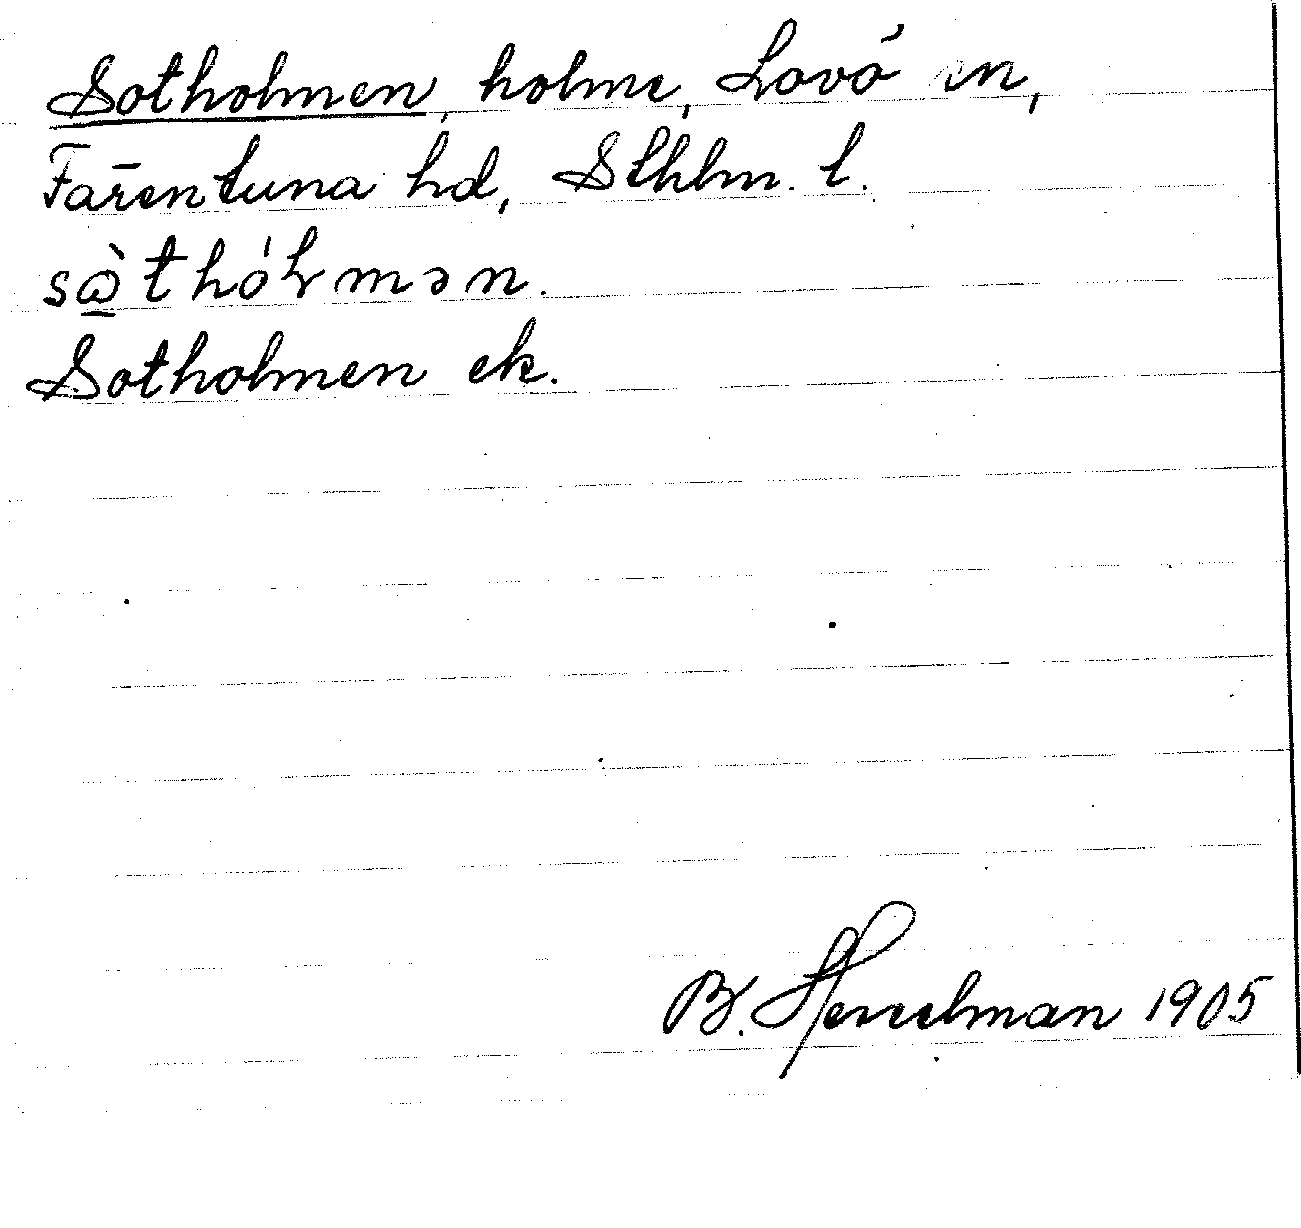 Sotholmen, holme, Lovö sn,
Färentuna hd, Sthlm. l.
sꞷ̀thólmən.
Sotholmen ek.
B. Hesselman 1905